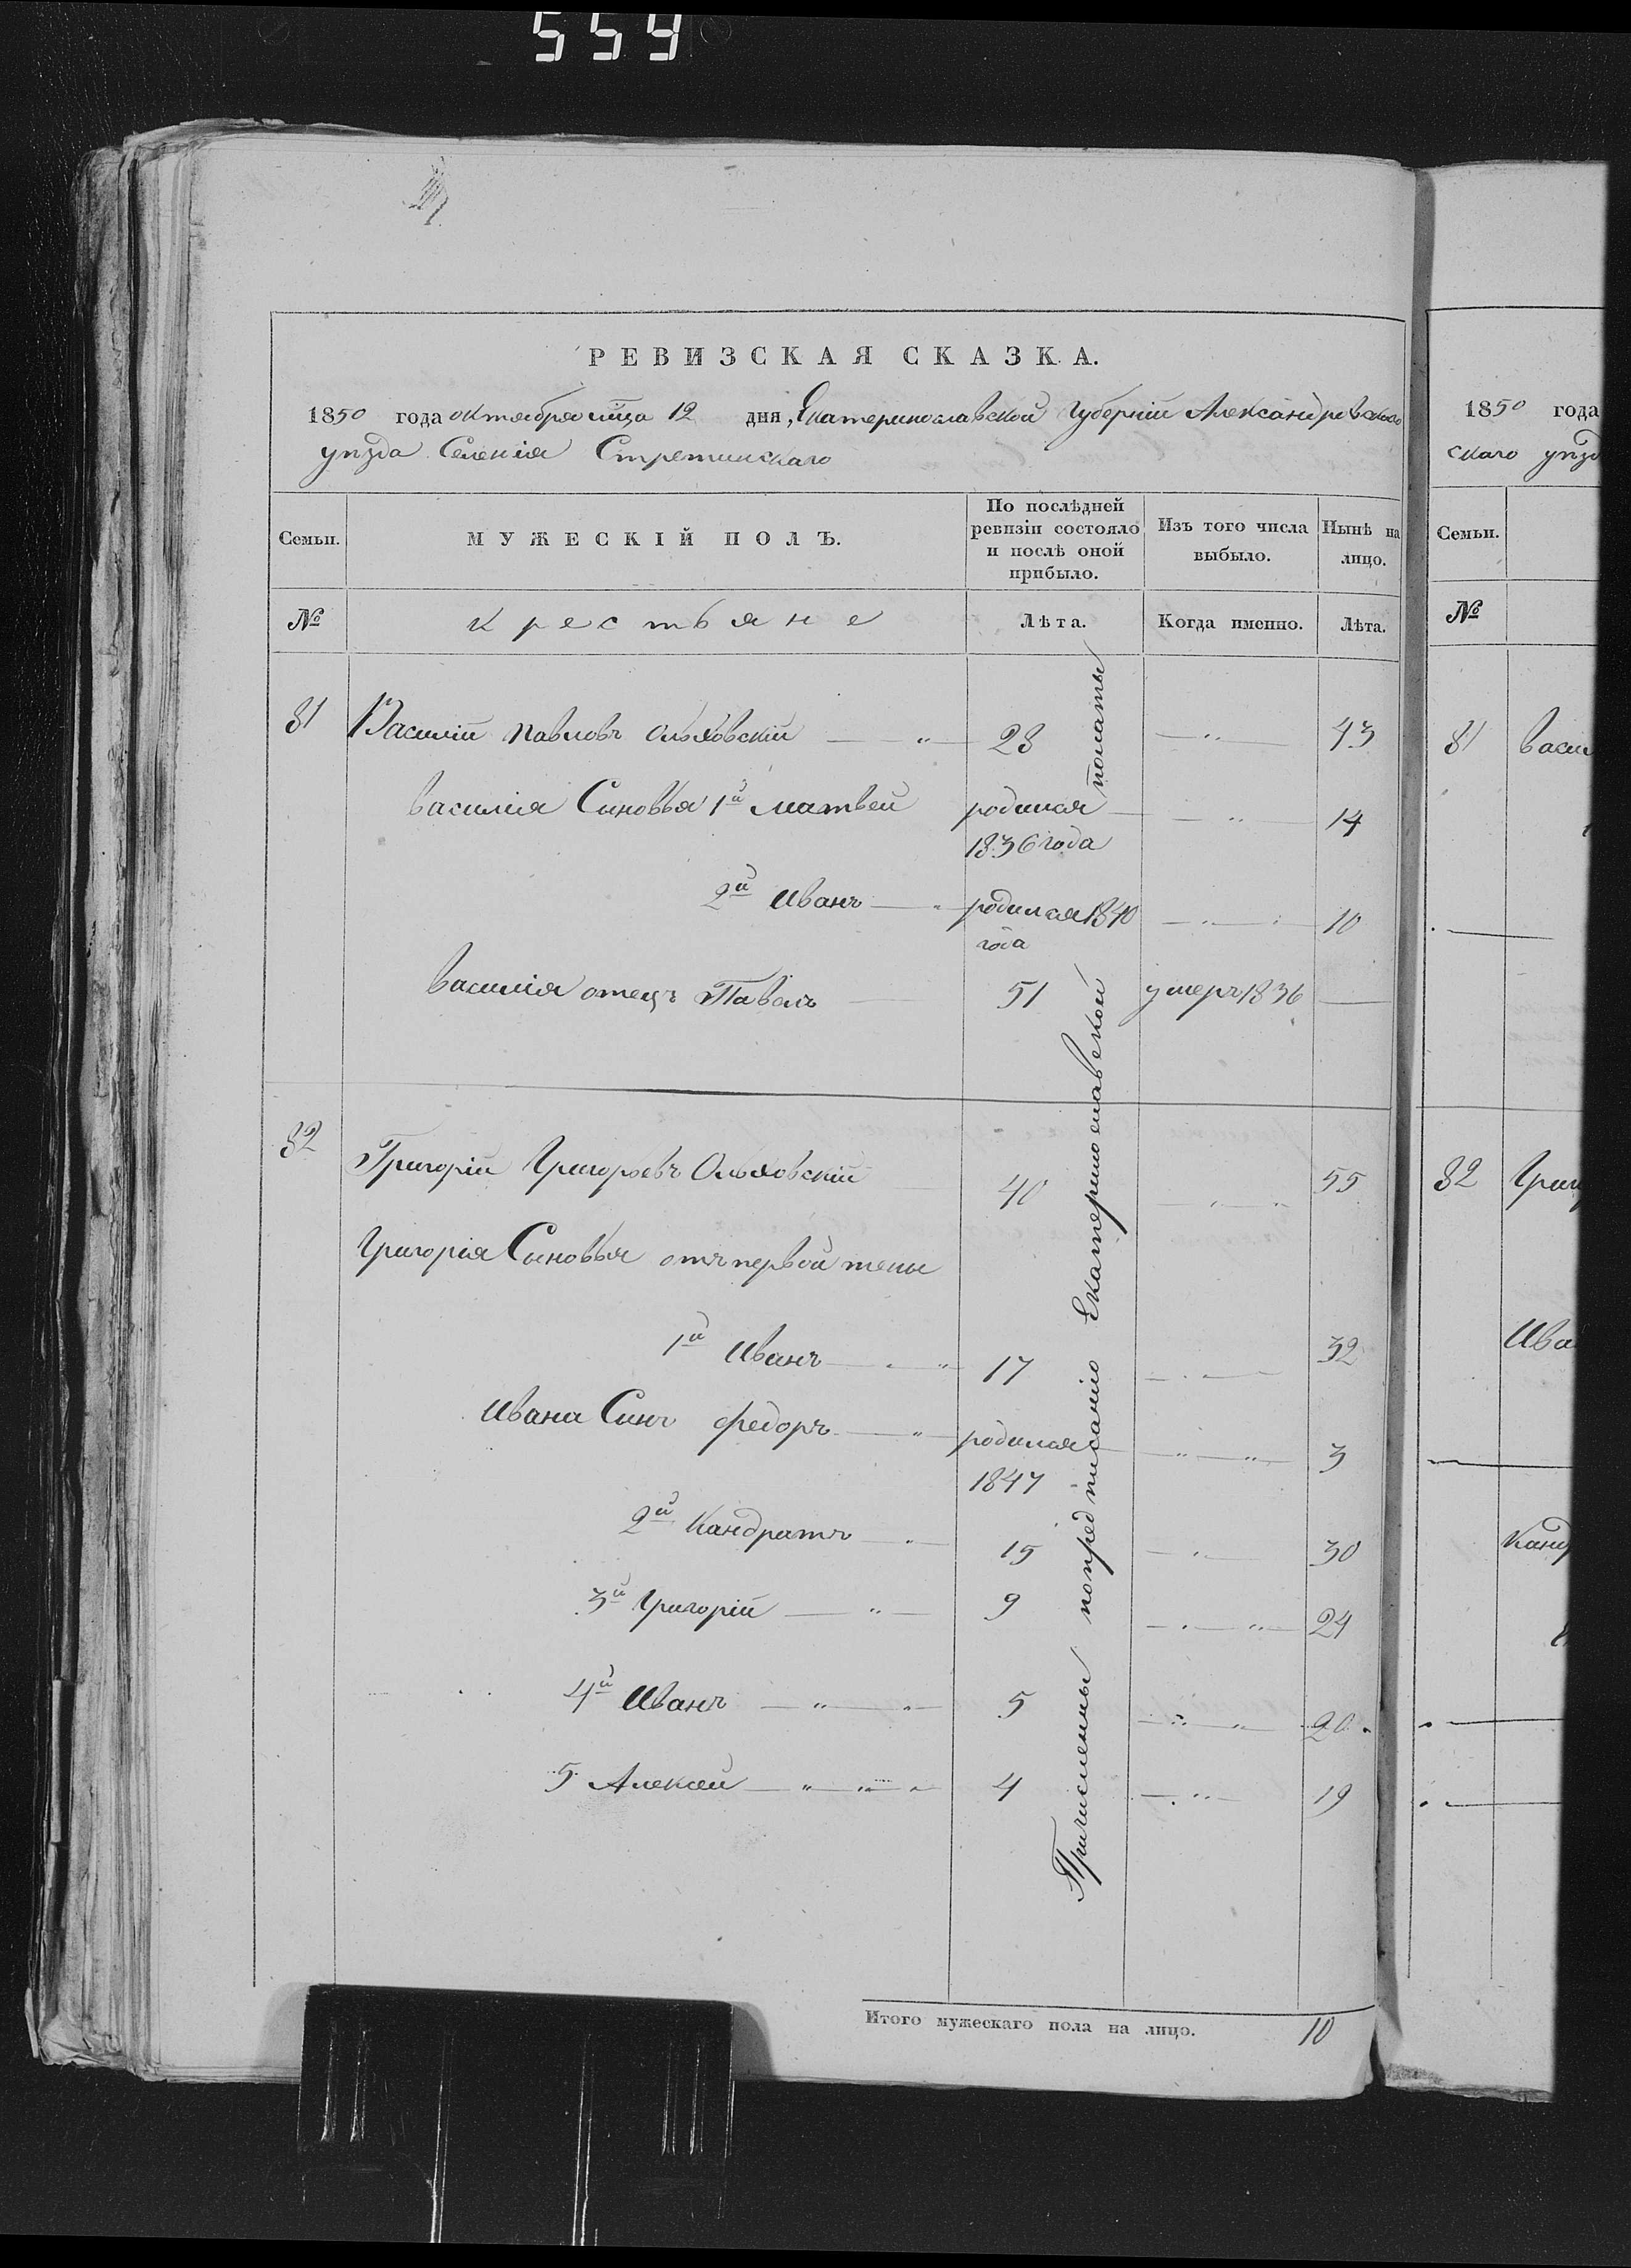 559
РЕВИЗСКАЯ СКАЗКА.
1850 года октября мца 12 дня, Екатеринославской Губерніи Александровскаго
уѣзда Селенія Стретинскаго
Семьи. МУЖЕСКІЙ ПОЛЪ. По послѣдней ревизіи состояло и послѣ оной прибыло. Изъ того числа выбыло. Нынѣ на лицо.
№ крестьяне Лѣта. Когда именно. Лѣта.
81 Василій Павловъ Ольховскій — " — 28 — " — 43
Василія Синовья 1й Матвей родился 1836 года — " — 14
2й Иванъ — " — родился 1840 года — " — 10
Василія отецъ Павелъ — 51 умеръ 1836 —
82 Григорій Григорьевъ Ольховскій — 40 — " — 55
Григорія Сыновья отъ первой жены
1й Иванъ — " 17 — " — 32
Ивана Синъ Федоръ — " — родился 1847 — " — " 3
2й Кандратъ — " — 15 — " — 30
3й Григорій — " — 9 — " — 24
4й Иванъ — " — " — 5 — " — 20
5 Алексей — " — " — 4 — " — 19
Причисленны попредписанію Екатеринославской полаты
Итого мужескаго пола на лицо. 10
1850 года
скаго уѣзд
Семьи.
№
81 Васи
82 Григ
Ива
Канд